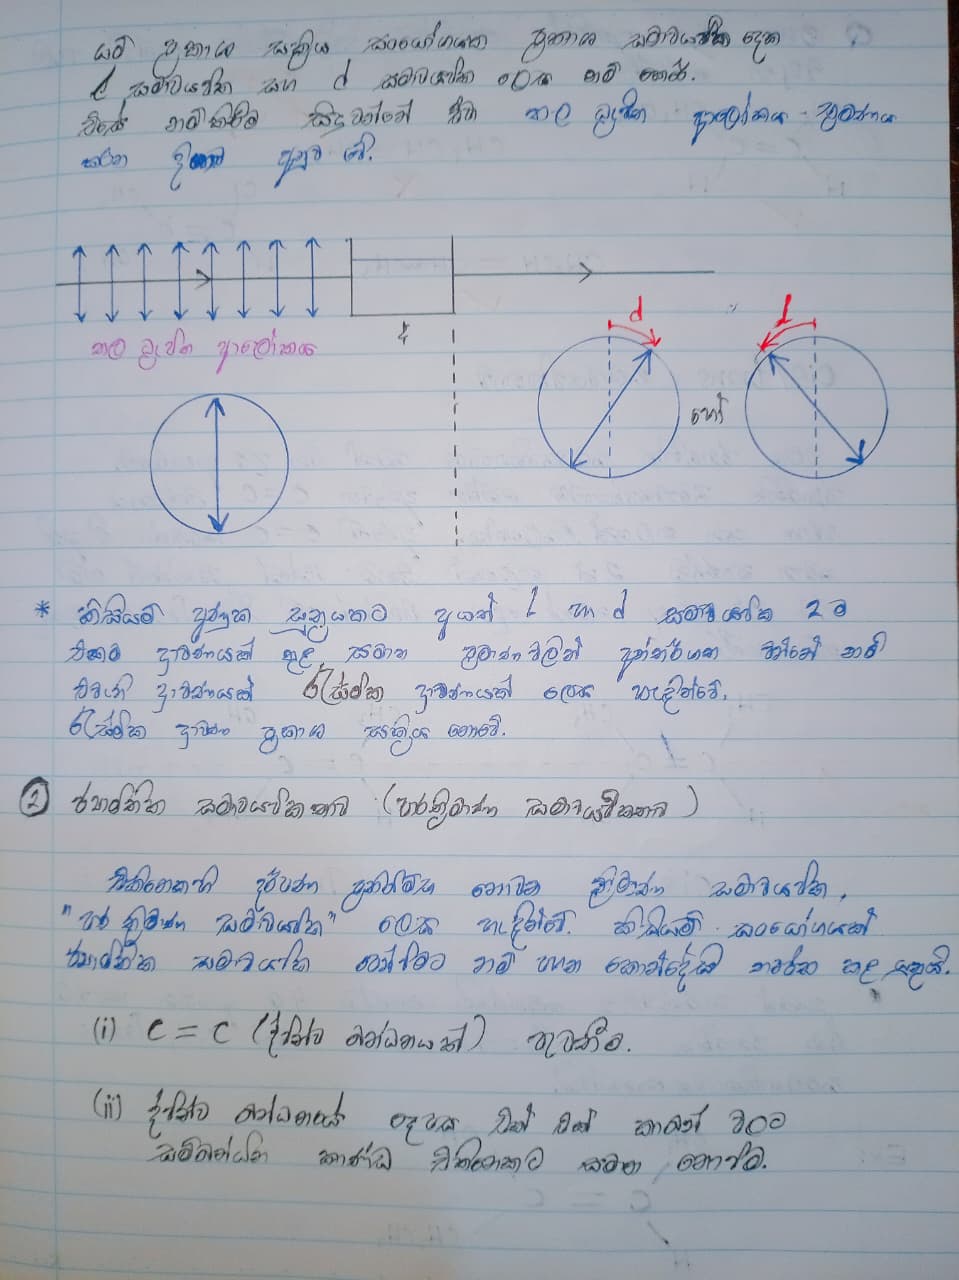 යම් ප්‍රකාශ සක්‍රිය සංයෝගයක ප්‍රකාශ සමාවයවික දෙක
l සමාවයවික සහ d සමාවයවික ලෙස නම් කෙරේ.
එසේ නම් කිරීම සිදුවන්නේ එම තල ධ්‍රැවිත ආලෝකය භ්‍රමණය
කරන දිශාව අනුව වේ.
තල ධ්‍රැවිත ආලෝකය
d
l
හෝ
* කිසියම් අණුක සූත්‍රයකට අයත් l හා d සමාවයවික 2 ම
එකම ද්‍රාවණයක් තුළ සමාන ප්‍රමාණවලින් අන්තර්ගත වන්නේ නම්
එවැනි ද්‍රාවණයක් රැසමික ද්‍රාවණයක් ලෙස හැඳින්වේ.
රැසමික ද්‍රාවණ ප්‍රකාශ සක්‍රිය නොවේ.
2 ජ්‍යාමිතික සමාවයවිකතාව (පාරත්‍රිමාණ සමාවයවිකතාව)
එකිනෙකෙහි දර්පණ ප්‍රතිබිම්භ නොවන ත්‍රිමාණ සමාවයවික,
"පාර ත්‍රිමාණ සමාවයවික" ලෙස හැඳින්වේ. කිසියම් සංයෝගයක්
ජ්‍යාමිතික සමාවයවික පෙන්වීමට නම් පහත කොන්දේසි සපුරා කළ යුතුයි.
(i) C = C (ද්විත්ව බන්ධනයක්) තිබීම.
(ii) ද්විත්ව බන්ධනයේ දෙපස එක් එක් කාබන් වලට
සම්බන්ධිත කාණ්ඩ එකිනෙකට සමාන නොවීම.